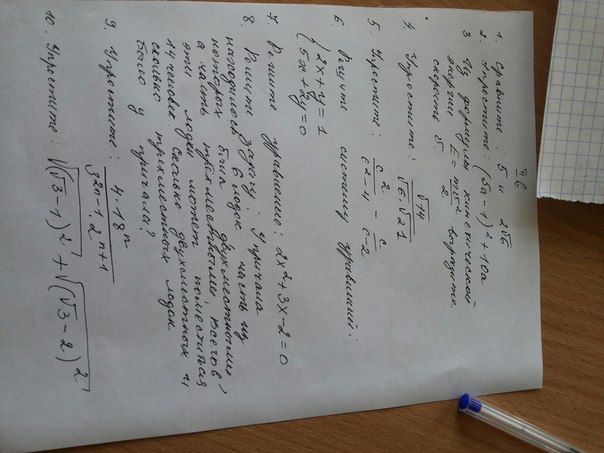 II в
1. Сравните 5 и 2√6
2. Упростите (5a-1)²+10a
3 Из формулы кинетической
энергии E = mv²/2 выразите
скорость v.
4. Упростите: √14/(√6·√21)
5. Упростите: 2/(c²-4) - c/(c-2)
6 Решите систему уравнений:
{2x+y=1
5x+2y=0
7. Решите уравнение: 2x²+3x-2=0
8. Решите задачу: У причала
находилось 6 лодок, часть из
которых были двухместными,
а часть трёхместными, всего в
эти лодки может поместиться
14 человек. Сколько двухместных и
сколько трёхместных лодок
было у причала?
9. Упростите: 4·18ⁿ/(3²ⁿ⁻¹·2ⁿ⁺¹)
10. Упростите: √(√3-1)² + √(√3-2)²